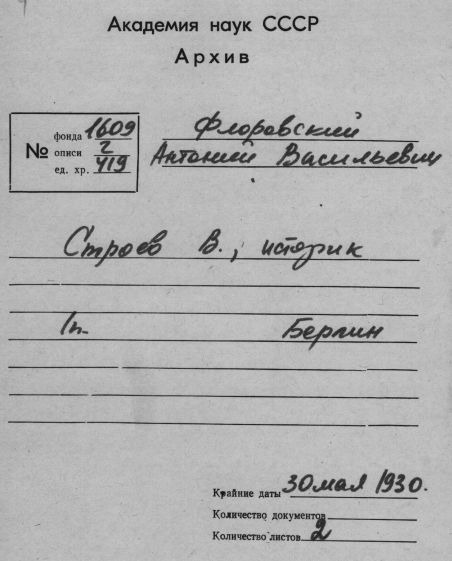 Академия наук СССР
Архив
№ фонда 1609
описи 2
ед. хр. 419
Флоровский
Антоний Васильевич
Строев В., историк
1п. Берлин
Крайние даты 30 мая 1930.
Количество документов
Количество листов 2